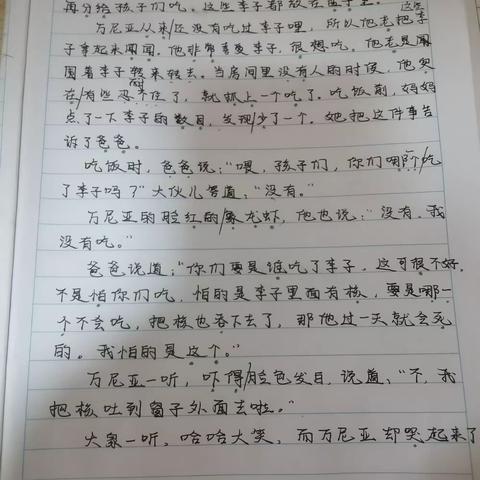 再分给孩子们吃。这些李子都放在盘子里。
这些
万尼亚从来/还没有吃过李子哩，所以他老把李
子拿起来闻闻。他非常喜爱李子，很想吃。他老是围
围着李子转来转去。当房间里没有人的时候，他实
在/有些忍耐不住了，就抓上一个吃了。吃饭前，妈妈
点了一下李子的数目，发现/少了一个。她把这件事告
诉了爸爸。
吃饭时，爸爸说：“喂，孩子们，你们哪个/吃
了李子吗？”大伙儿答道：“没有。”
万尼亚的脸红的/像龙虾，他也说：“没有，我
没有吃。”
爸爸说道：“你们要是谁吃了李子，这可很不好。
不是怕你们吃，怕的是李子里面有核，要是哪一
个不会吃，把核也吞下去了，那他过一天就会死
的。我怕的是这个。”
万尼亚一听，吓得/脸色发白，说道：“不，我
把核吐到窗子外面去啦。”
大家一听，哈哈大笑，而万尼亚却哭起来了